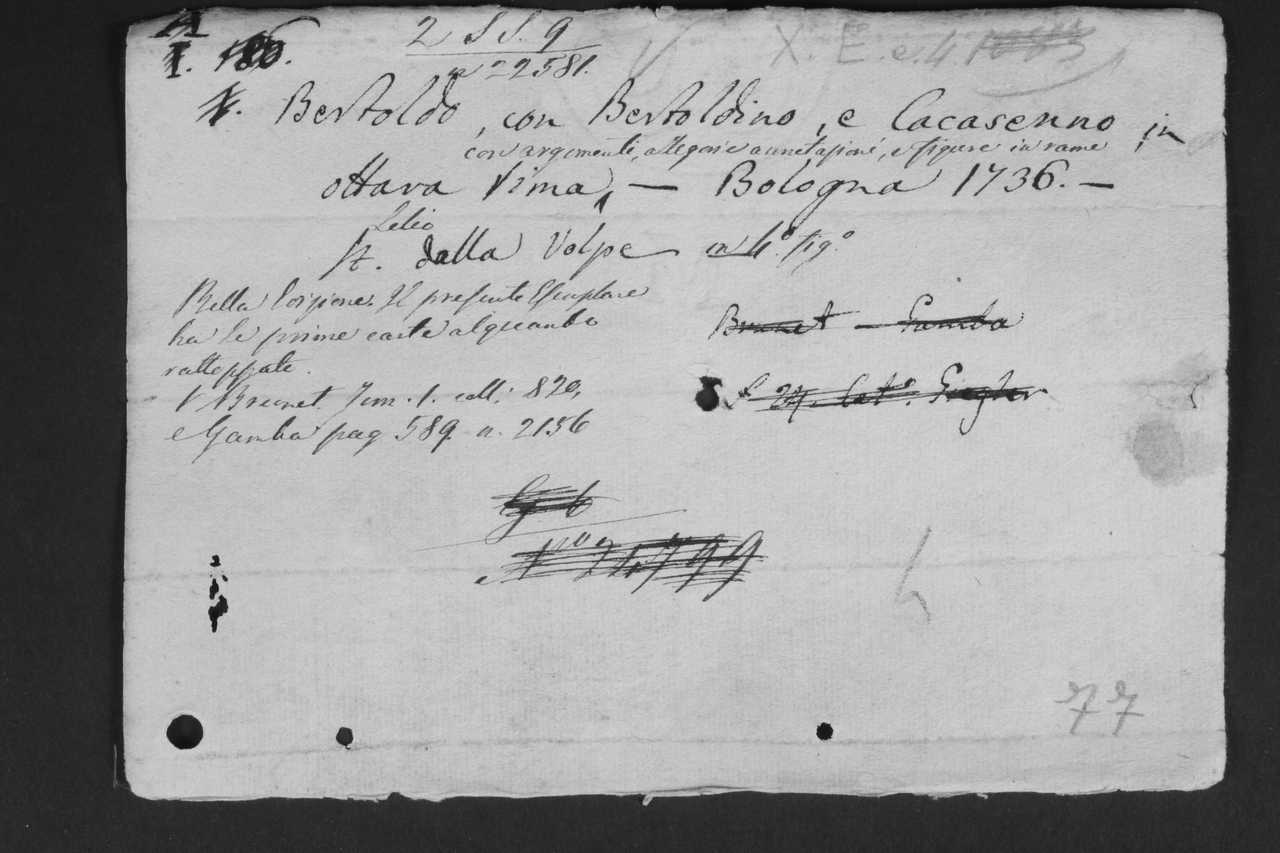 2 S S. 9
n 22581.
Bertoldo, con Bertoldino, e Cacasenno, in
con argomenti, allegorie annotazioni, e figure in rame
ottava rima, — Bologna 1736. —
Lelio
St. dalla Volpe in 4.º fig.º
Bella Edizione. Il presente Esemplare
ha le prime carte alquanto
rattoppate.
V Brunet. Tom. 1. coll. 820,
e Gamba pag 589. n. 2156
Brunet — Gamba
Nº 24799
77